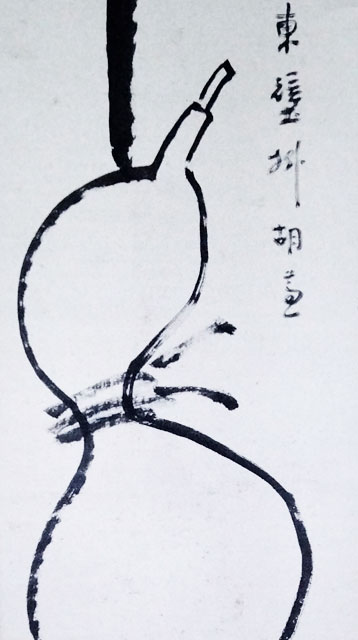 東壁掛胡蘆